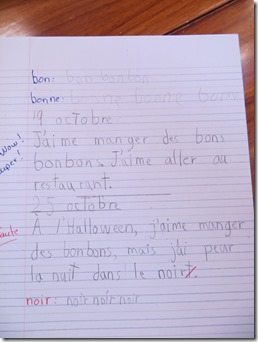 bon: bon bonbon
bonne: bonne bonne bonne
19 octobre
Wow!
Super!
J'aime manger des bons
bonbons. J'aime aller au
restaurant.
25 octobre
À l'Halloween, j'aime manger
des bonbons, mais j'ai peur
la nuit dans le noirt.
noir: noir noir noir